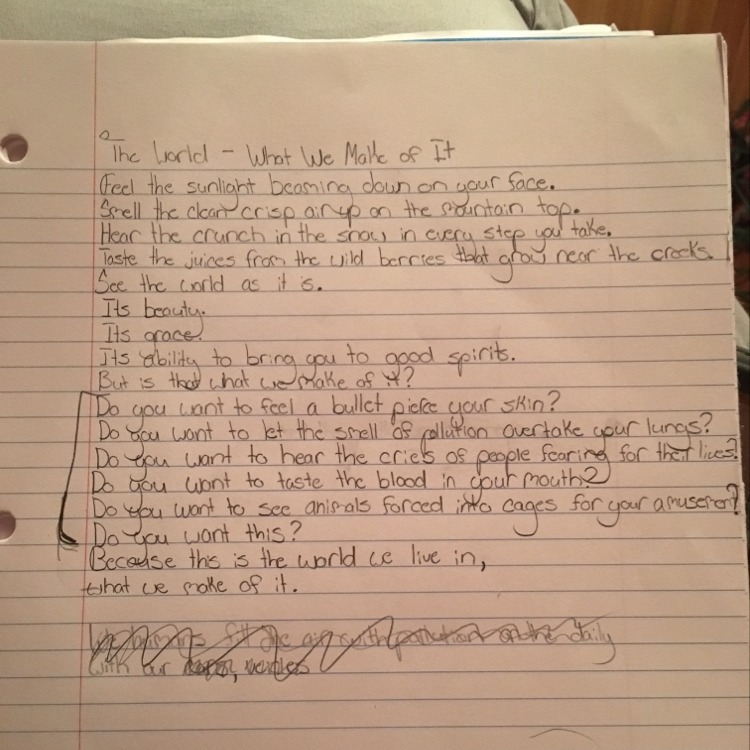 The World - What We Make of It
Feel the sunlight beaming down on your face.
Smell the clean crisp air up on the mountain top.
Hear the crunch in the snow in every step you take.
Taste the juices from the wild berries that grow near the creeks.
See the world as it is.
Its beauty.
Its grace.
Its ability to bring you to good spirits.
But is that what we make of it?
Do you want to feel a bullet pierce your skin?
Do you want to let the smell of pollution overtake your lungs?
Do you want to hear the cries of people fearing for their lives?
Do you want to taste the blood in your mouth?
Do you want to see animals forced into cages for your amusement?
Do you want this?
Because this is the world we live in,
what we make of it.
fill the air with pollution daily
with our